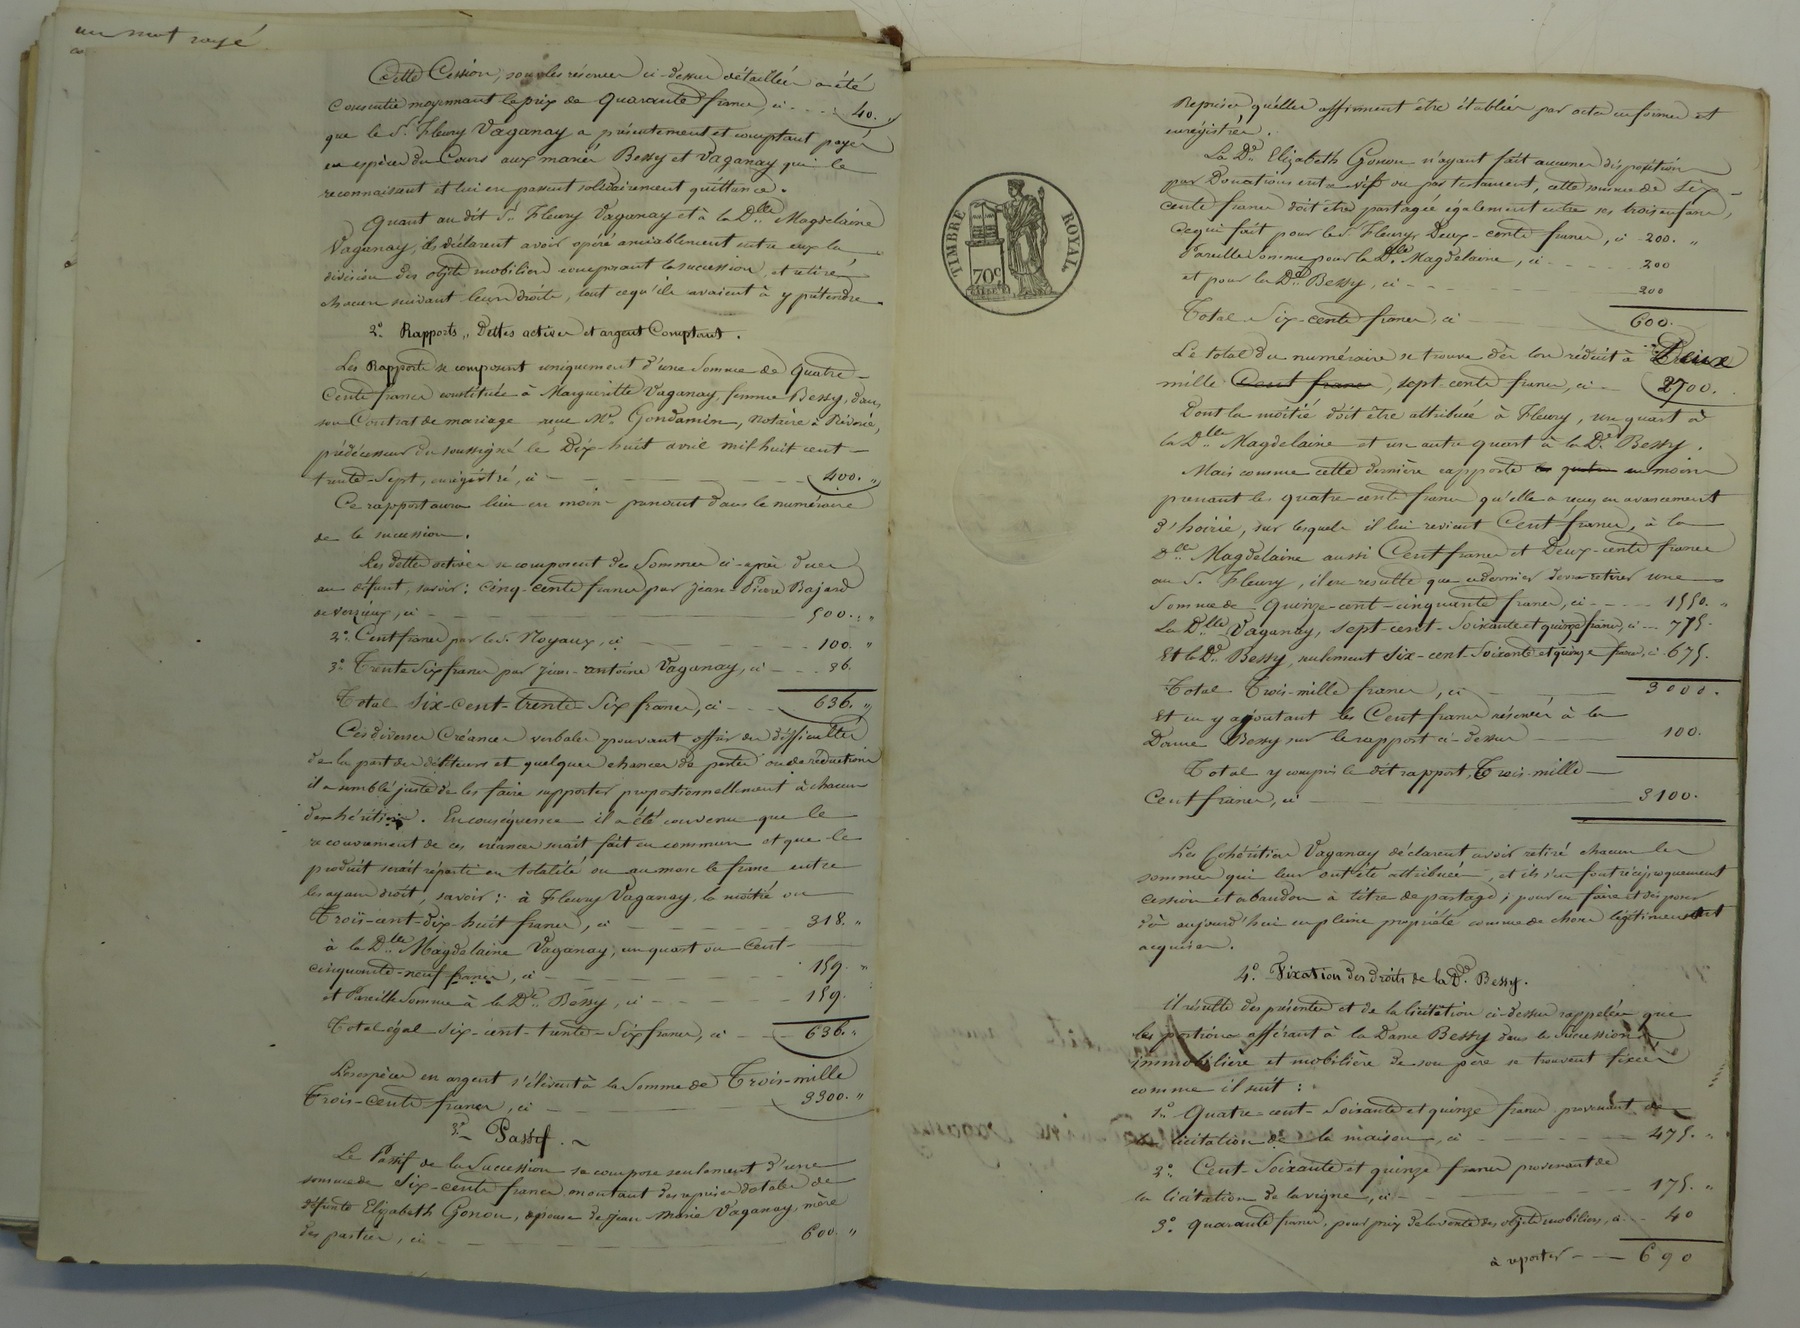 un mot rayé
Cette Cession, sous les réserves ci-dessus détaillées a été
consentie moyennant le prix de quarante francs, ci 40. „
que le S. Fleury Vaganay a présentement et comptant payé
en espèces du Cours aux mariés Bessy et Vaganay qui le
reconnaissent et lui en passent solidairement quittance.
Quant au dit S. Fleury Vaganay et à la Dlle Magdelaine
Vaganay, ils déclarent avoir opéré amiablement entre eux la
division des objets mobiliers composant la succession, et retiré
chacun suivant leurs droits, tout ce qu'ils avaient à y prétendre.
2° Rapports, Dettes actives et argent Comptant.
Les Rapports se composent uniquement d'une Somme de quatre-
Cents francs constituée à Margueritte Vaganay, femme Bessy, dans
son Contrat de mariage reçu Me Gondamin, Notaire à Riverie,
prédécesseur du soussigné le Dix-huit avril mil huit cent-
trente-Sept, enregistré, ci 400. „
Ce rapport aura lieu en moins prenant dans le numéraire
de la succession.
Les dettes actives se composent des Sommes ci-après dues
au défunt, savoir : cinq-cents francs par Jean-Pierre Bajard
de Verzieux, ci 500. „
2° Cent francs par le S. Noyaux, ci 100. „
3° Trente Six francs par Jean-antoine Vaganay, ci 36.
Total Six-cent-trente-Six francs, ci 636. „
Ces diverses Créances verbales pouvant offrir des difficultés
de la part des débiteurs et quelques chances de perte ou de réduction
il a semblé juste de les faire supporter proportionnellement à chacun
des héritiers. En conséquence il a été convenu que le
recouvrement de ces créances serait fait en commun et que le
produit serait réparti en totalité ou au marc le franc entre
les ayans droit, savoir : à Fleury Vaganay, la moitié ou
Trois-cent-dix-huit francs, ci 318. „
à la Dlle Magdelaine Vaganay, un quart ou Cent-
cinquante-neuf francs, ci 159. „
et Pareille Somme à la De Bessy, ci 159.
Total égal Six-cent-trente-Six francs, ci 636. „
Les espèces en argent s'élèvent à la Somme de Trois-mille
Trois-Cents francs, ci 3300. „
3° Passif.
Le Passif de la Succession se compose seulement d'une
somme de Six-cents francs montant des reprises dotales de
défunte Elizabeth Gonon, épouse de Jean Marie Vaganay, mère
des parties, ci 600 „
Reprises qu'elles affirment être établies par actes en forme et
enregistrés.
TIMBRE ROYAL
70c
La De Elizabeth Gonon n'ayant fait aucunes dispositions
par Donations entre vifs ou par testament, cette somme de Six-
cents francs doit être partagée également entre ses trois enfans,
Ce qui fait pour le S. Fleury, Deux-cents francs, ci 200. „
Pareille somme pour la Dlle Magdelaine, ci 200
et pour la De Bessy, ci 200
Total Six-cents francs, ci 600.
Le total du numéraire se trouve dès lors réduit à Deux
mille Cent francs, sept cents francs, ci 2700.
Dont la moitié doit être attribuée à Fleury, un quart à
la Dlle Magdelaine et un autre quart à la De Bessy.
Mais comme cette dernière rapporte en moins
prenant les quatre-cents francs qu'elle a reçus en avancement
d'hoirie, sur lesquels il lui revient Cent francs, à la
Dlle Magdelaine aussi Cent francs et Deux-cents francs
au S. Fleury, il en résulte que ce dernier devra retirer une
Somme de quinze-cent-cinquante francs, ci 1550. „
La Dlle Vaganay, sept-cent-Soixante et quinze francs, ci 775.
Et la De Bessy, seulement Six-cent-Soixante et quinze francs, ci 675.
Total Trois-mille francs, ci 3000.
Et en y ajoutant les Cent francs réservés à la
Dame Bessy sur le rapport ci-dessus 100.
Total y compris le dit rapport, Trois-mille
Cent francs, ci 3100.
Les Cohéritiers Vaganay déclarent avoir retiré chacun les
sommes qui leur ont été attribuées, et ils s'en font réciproquement
cession et abandon à titre de partage ; pour en faire et disposer
dès aujourd'hui en pleine propriété comme de chose légitimement
acquise.
4° Fixation des droits de la De Bessy.
Il résulte des présentes et de la licitation ci-dessus rappelée que
les portions afférant à la Dame Bessy dans les Successions
immobilière et mobilière de son père se trouvent fixées
comme il suit :
1° Quatre-cent-Soixante et quinze francs provenant de
la licitation de la maison, ci 475. „
2° Cent Soixante et quinze francs provenant de
la licitation de la vigne, ci 175. „
3° quarante francs, pour prix de la vente des objets mobiliers, ci 40
à reporter 690